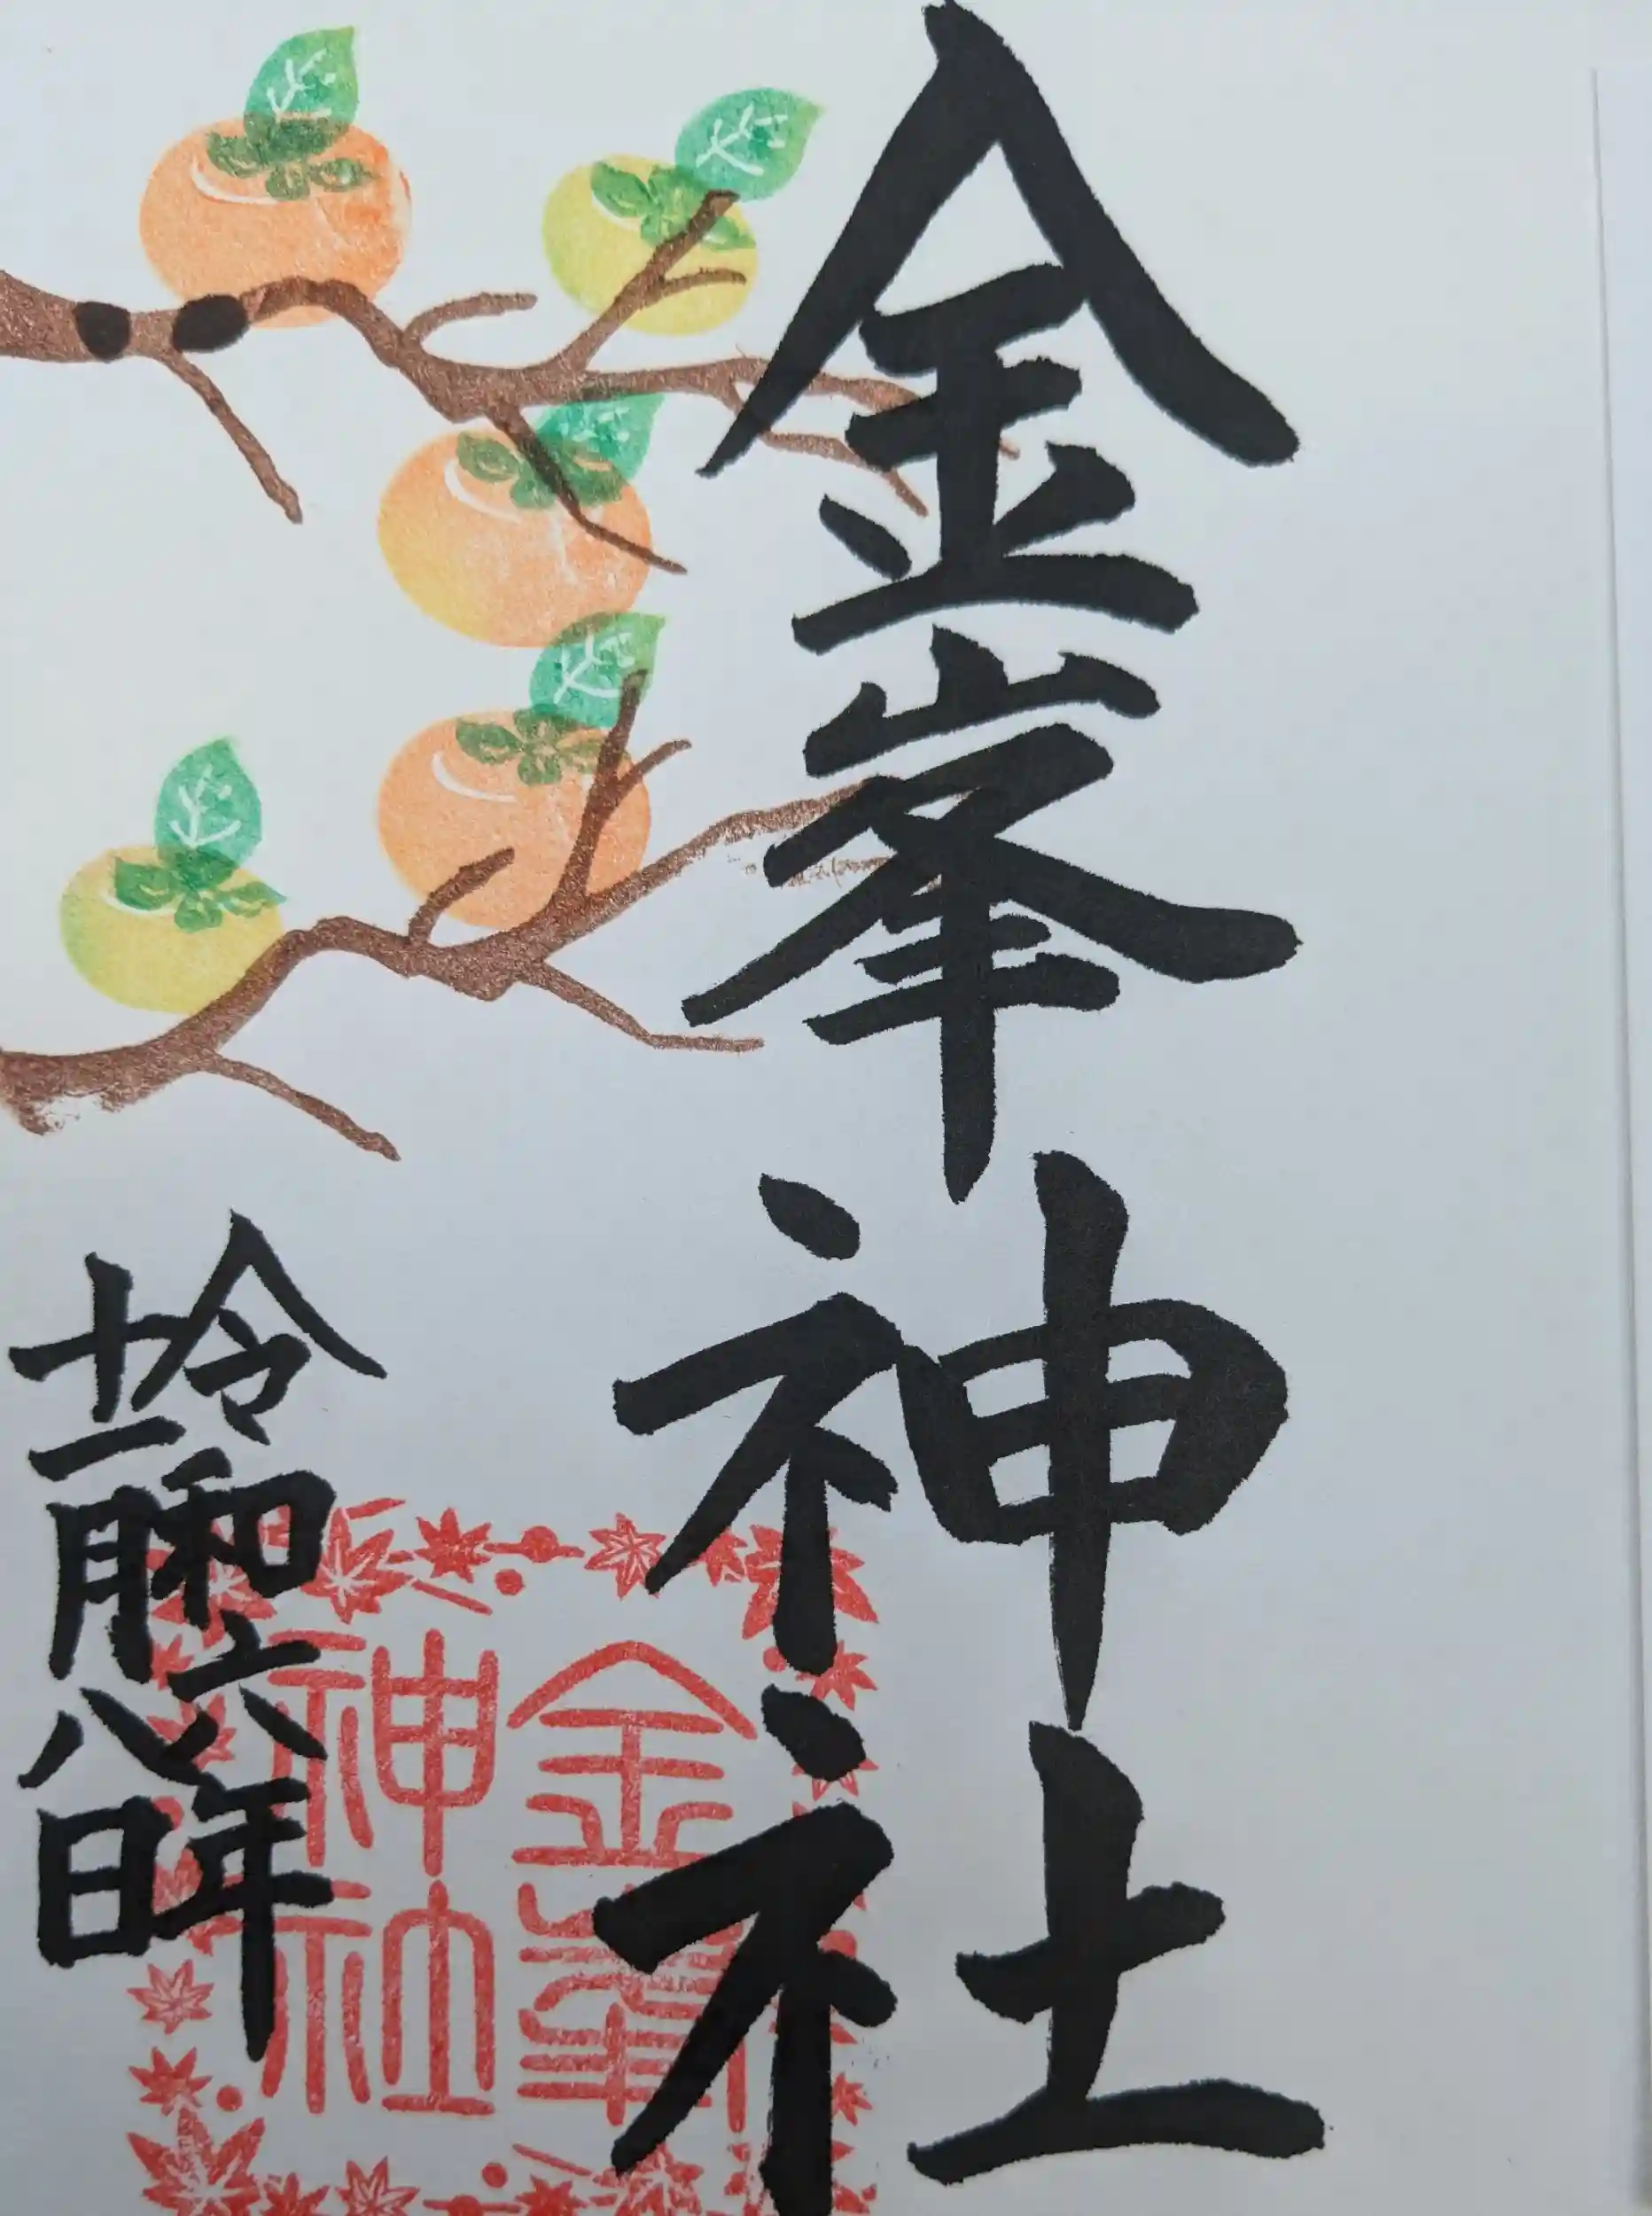 金峯神社
令和六年
十一月八日
金峯
神社